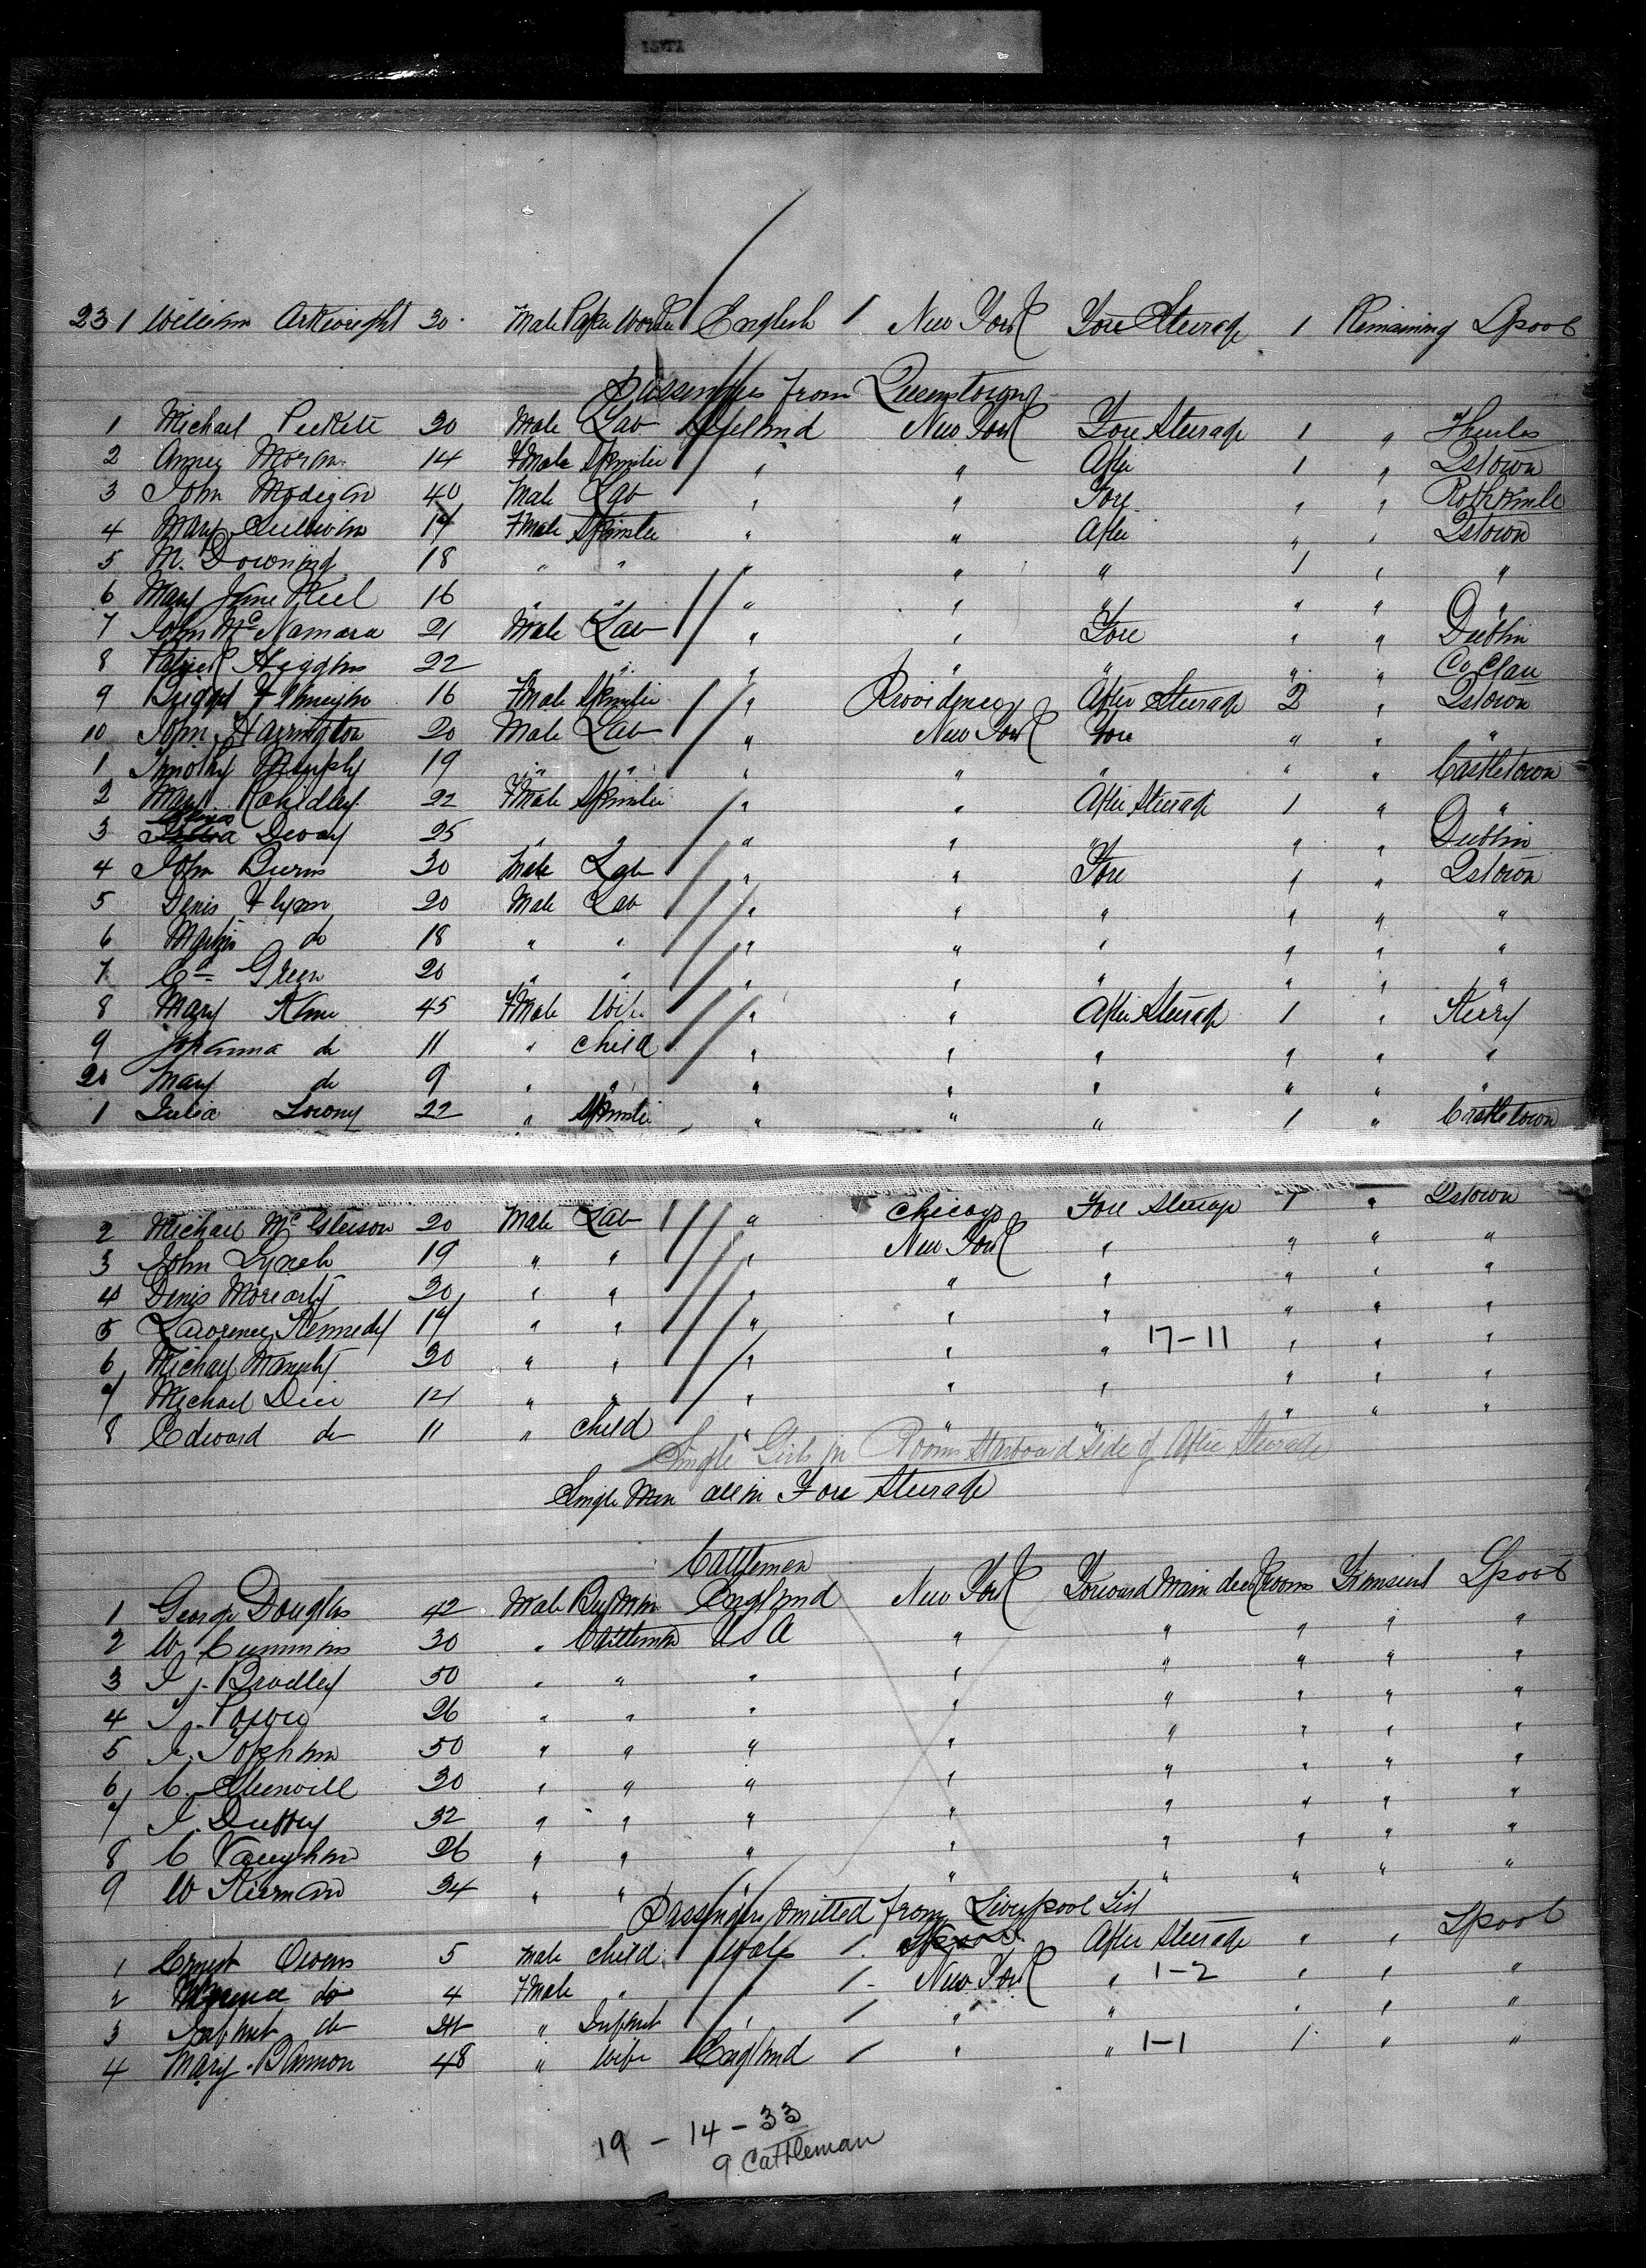 231 William Arkwright 30 Male Paper Worker English 1 New York Fore Steerage 1 Remaining Lpool
Passengers from Queenstown
1 Michael 20 Male Lab Ireland New York Fore Steerage 1 " Thurles
2 Annie Moran 14 Fmale Spinster " " After 1 " Qstown
3 John Madigan 40 Male Lab " " Fore " " Rathkeale
4 Mary Sullivan 17 Fmale Spinster " " After " " Qstown
5 M. Downing 18 " " " " " 1 " "
6 Mary Jane 16 " " " " " " " "
7 John McNamara 21 Male Lab " " Fore " " Dublin
8 Patrick Higgins 22 " " " " " " " Co Clare
9 Bridget 16 Fmale Spinster " Providence After Steerage 2 " Qstown
10 John Harrington 20 Male Lab " New York Fore " " "
1 Timothy Murphy 19 " " " " " " " Castletown
2 Mary 22 Fmale Spinster " " After Steerage 1 " "
3 Devoy 25 " " " " " " " Dublin
4 John Burns 30 Male Lab " " Fore 1 " Qstown
5 Denis Flynn 20 Male Lab " " " " " "
6 Martin do 18 " " " " " " " "
7 Green 20 " " " " " " " "
8 Mary 45 Fmale Wife " " After Steerage 1 " Kerry
9 Johanna do 11 " Child " " " " " "
20 Mary do 9 " " " " " " " "
1 Julia 22 " Spinster " " " 1 " Castletown
2 Michael McGleeson 20 Male Lab " Chicago Fore Steerage 1 " Qstown
3 John Lynch 19 " " " New York " " " "
4 Denis Moriarty 20 " " " " " " " "
5 Lawrence Kennedy 19 " " " " " " " "
6 Michael 20 " " " " " 17-11 " " "
7 Michael 14 " " " " " " " "
8 Edward do 11 " Child " " " " " "
Single Girls in Rooms Starboard Side of After Steerage
Single Men all in Fore Steerage
Cattlemen
1 George Douglas 42 Male England New York Forward Main deck Rooms Transient Lpool
2 W Cummins 30 " Cattleman USA " " " " "
3 J. Bradley 50 " " " " " " " "
4 26 " " " " " " " "
5 J. Topham 50 " " " " " " " "
6 C. 30 " " " " " " " "
7 J. Duffey 32 " " " " " " " "
8 C Vaughan 26 " " " " " " " "
9 W Kiernan 34 " " " " " " " "
Passengers omitted from Liverpool List
1 Ernest Owens 5 Male Child Wales 1 After Steerage " " Lpool
2 do 4 Fmale " " 1 New York " 1-2 " " "
3 Infant do " Infant " " " " " "
4 Mary Bannon 48 " Wife England " " 1-1 1 " "
19 - 14 - 33
9 Cattleman